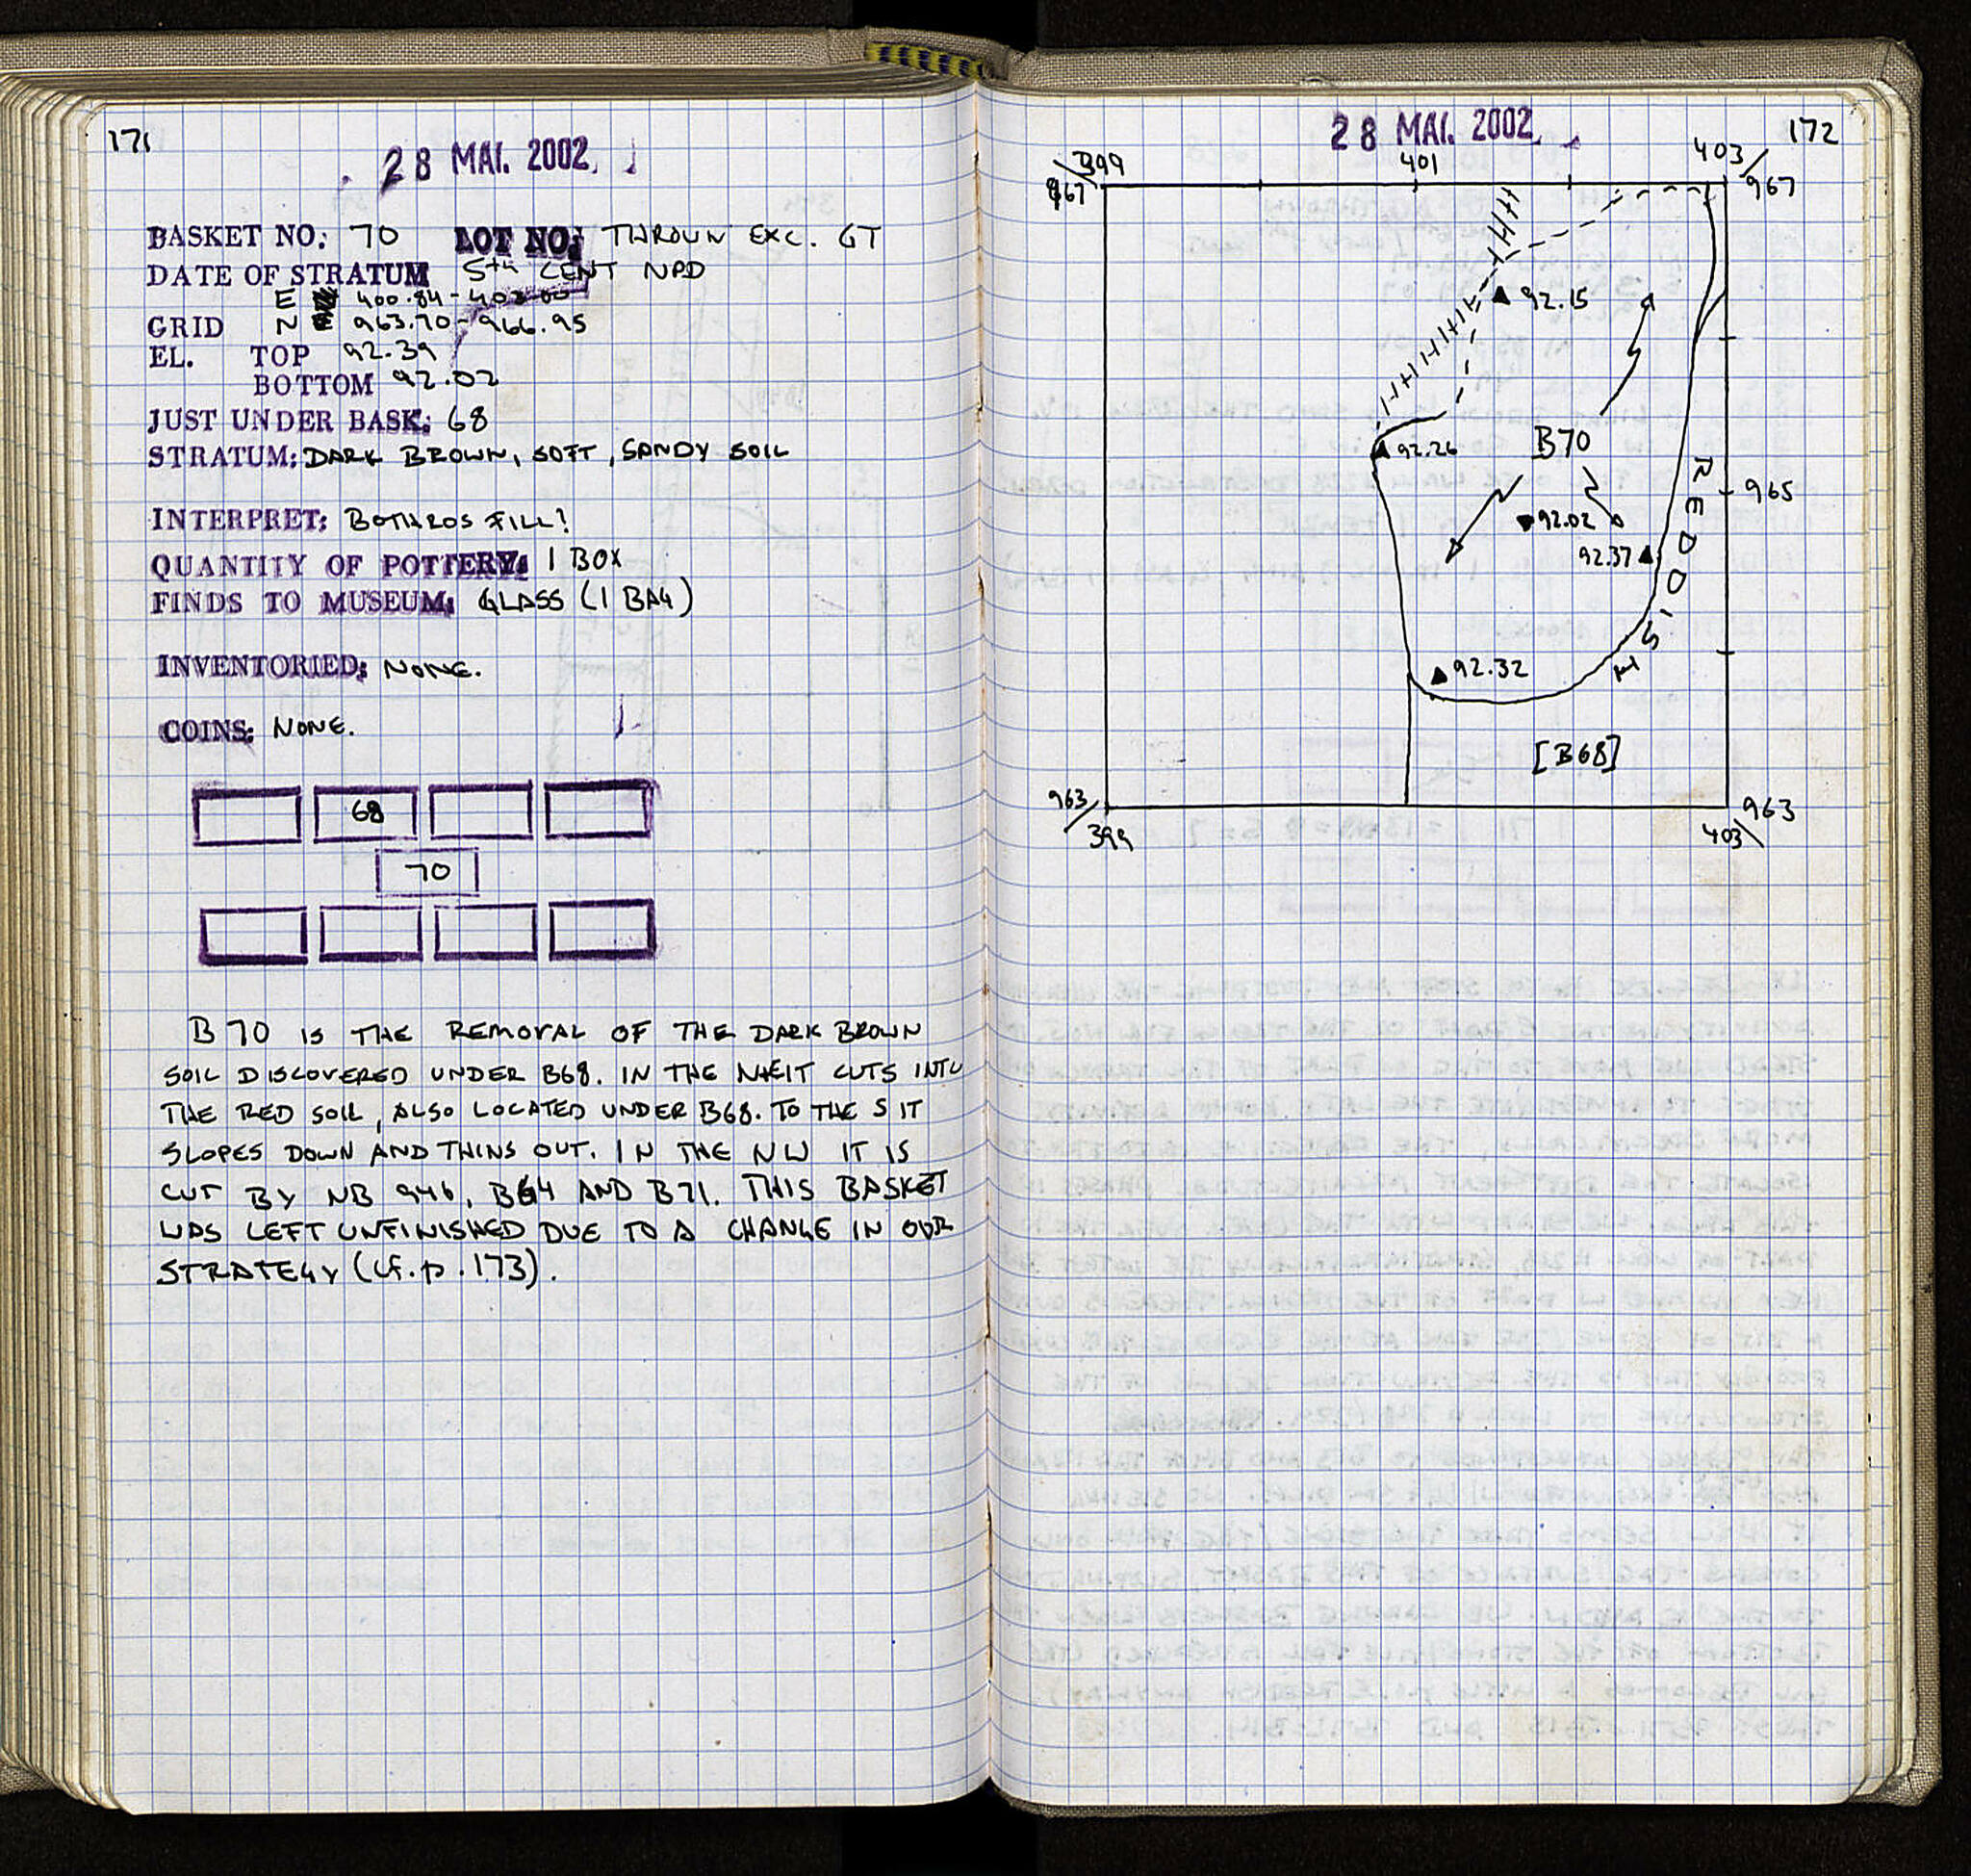 171
28 MAI. 2002
BASKET NO: 70 LOT NO: THROWN EXC. GT
DATE OF STRATUM 5th CENT NPD
E 400.84-403.00
GRID N 963.70-966.95
EL. TOP 92.39
BOTTOM 92.02
JUST UNDER BASK: 68
STRATUM: DARK BROWN, SOFT, SANDY SOIL
INTERPRET: BOTHROS FILL?
QUANTITY OF POTTERY: 1 BOX
FINDS TO MUSEUM: GLASS (1 BAG)
INVENTORIED: NONE.
COINS: NONE.
68
70
B 70 IS THE REMOVAL OF THE DARK BROWN
SOIL DISCOVERED UNDER B68. IN THE N+E IT CUTS INTO
THE RED SOIL, ALSO LOCATED UNDER B68. TO THE S IT
SLOPES DOWN AND THINS OUT. IN THE NW IT IS
CUT BY NB 946, B64 AND B71. THIS BASKET
WAS LEFT UNFINISHED DUE TO A CHANGE IN OUR
STRATEGY (cf. p. 173).
28 MAI. 2002
172
399
967
401
403
967
92.15
92.26
B70
965
92.02
92.37
RED DIST
92.32
[B68]
963
399
963
403